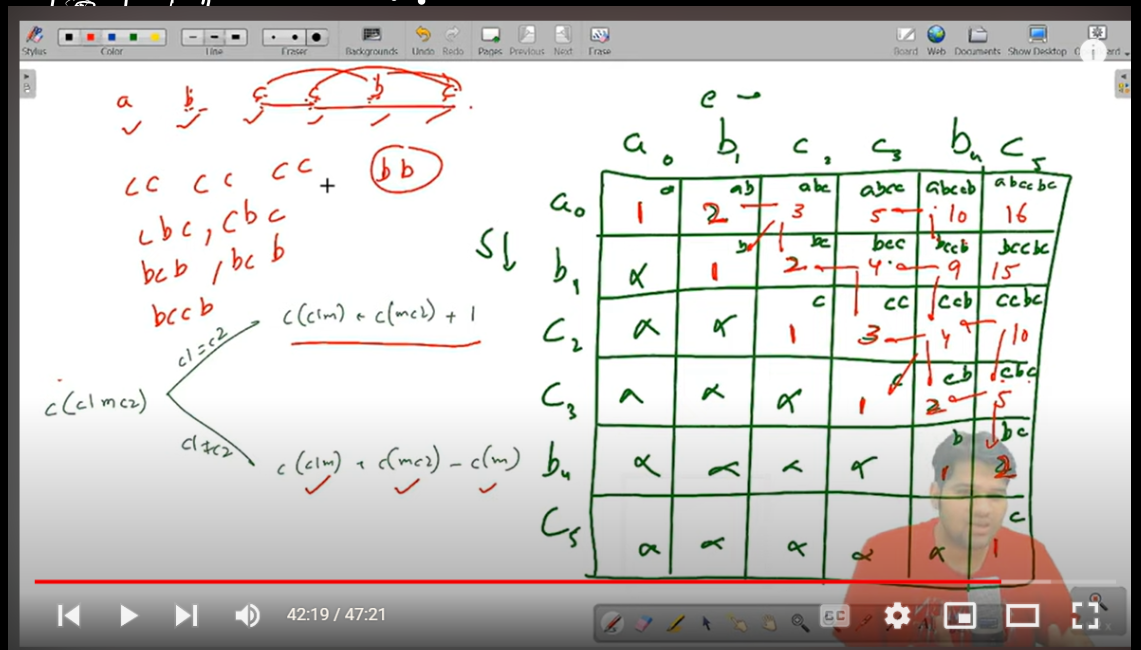 Stylus Color Line Eraser Backgrounds Undo Redo Pages Previous Next Erase Board Web Documents Show Desktop
a b c c b c
cc cc cc + bb
cbc, cbc
bcb, bcb
bccb
c(c1mc2)
c1=c2
c(c1m) + c(mc2) + 1
c1≠c2
c(c1m) + c(mc2) - c(m)
e →
S↓
a0 b1 c2 c3 b4 c5
a ab abc abcc abccb abccbc
a0 1 2 3 5 10 16
b bc bcc bccb bccbc
b1 α 1 2 4 9 15
c cc ccb ccbc
c2 α α 1 3 4 10
c cb cbc
c3 α α α 1 2 5
b bc
b4 α α α α 1 2
c
c5 α α α α α 1
42:19 / 47:21